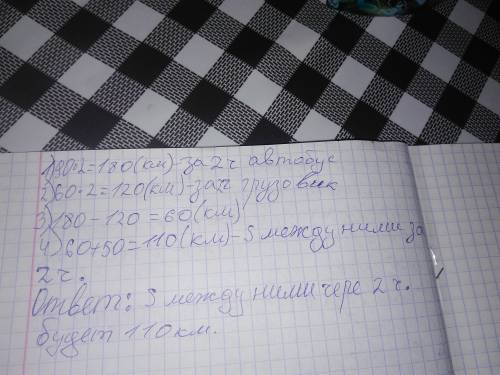 1) 90·2=180(км)-за 2ч автобус
2) 60·2=120(км)-за 2ч грузовик
3) 180-120=60(км)
4) 60+50=110(км)-S между ними за
2 ч.
Ответ: S между ними чере 2 ч.
будет 110 км.